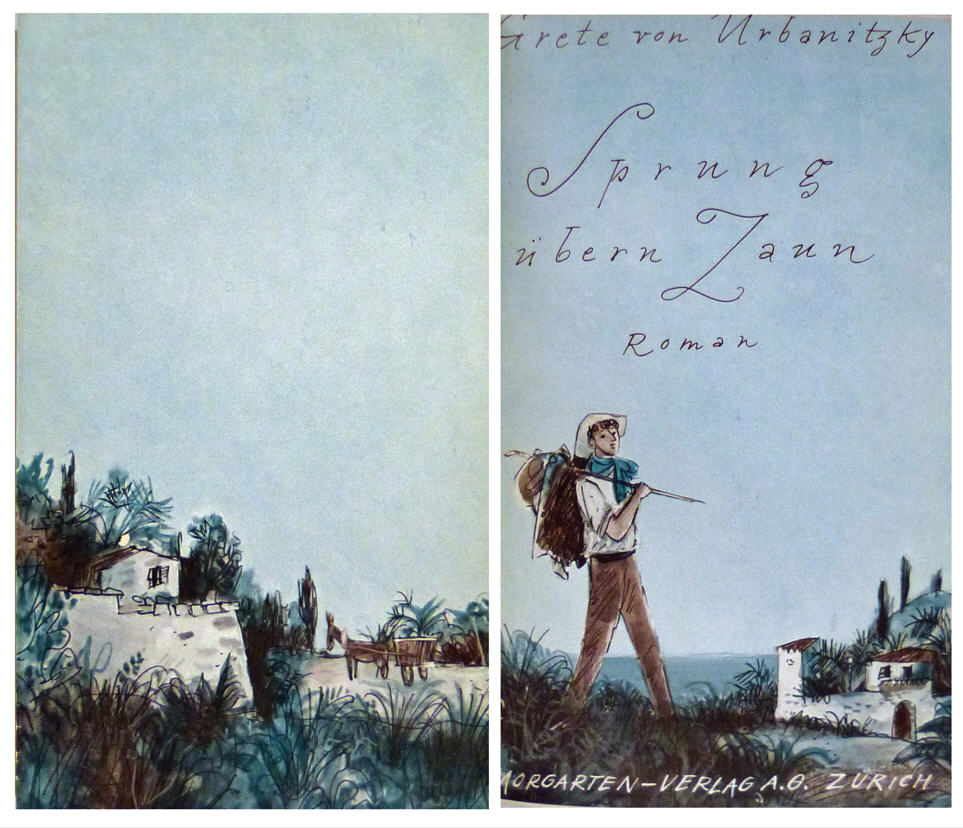 Grete von Urbanitzky
Sprung
übern Zaun
Roman
MORGARTEN-VERLAG A.G. ZÜRICH